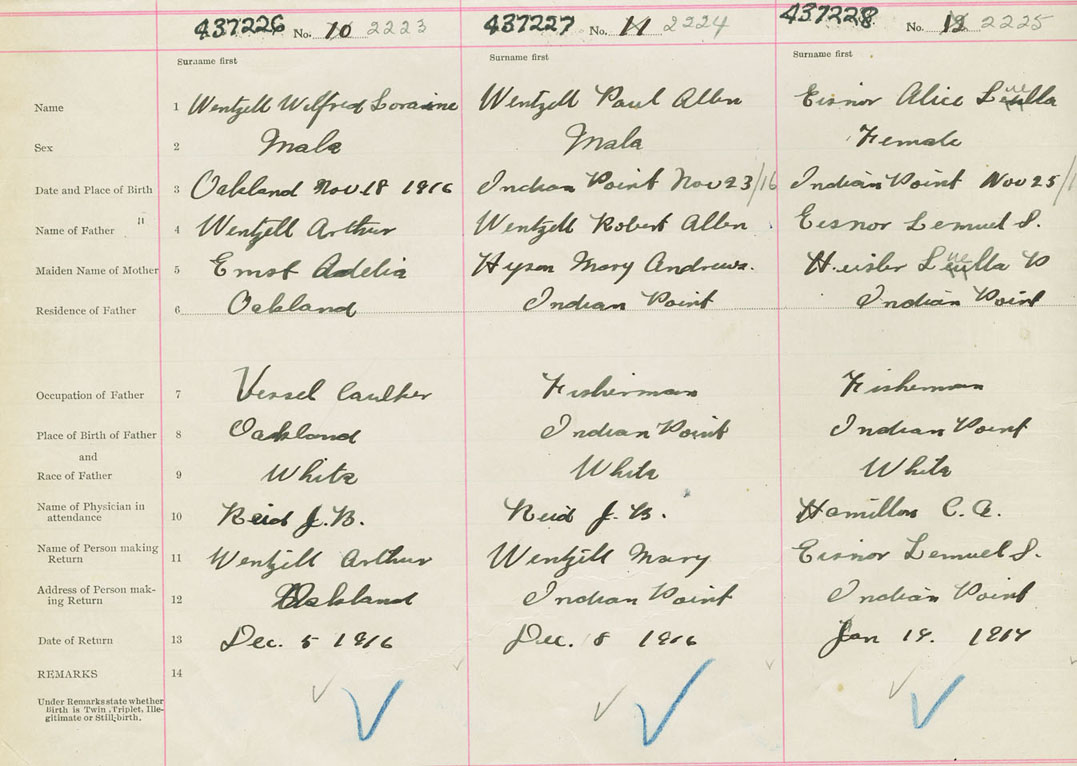 437226 No. 10 2223 437227 No. 11 2224 437228 No. 12 2225
Surname first Surname first Surname first
Name 1 Wentzell Wilfred Loraine Wentzell Paul Allen Eisnor Alice Luella
Sex 2 Male Male Female
Date and Place of Birth 3 Oakland Nov 18 1916 Indian Point Nov 23/16 Indian Point Nov 25/1
Name of Father 4 Wentzell Arthur Wentzell Robert Allen Eisnor Lemuel S.
Maiden Name of Mother 5 Ernst Adelia Hyson Mary Andrews. Heisler Luella P
Residence of Father 6 Oakland Indian Point Indian Point
Occupation of Father 7 Vessel Caulker Fisherman Fisherman
Place of Birth of Father 8 Oakland Indian Point Indian Point
and
Race of Father 9 White White White
Name of Physician in
attendance 10 Reid J. B. Reid J. B. Hamilton C. A.
Name of Person making
Return 11 Wentzell Arthur Wentzell Mary Eisnor Lemuel S.
Address of Person mak-
ing Return 12 Oakland Indian Point Indian Point
Date of Return 13 Dec. 5 1916 Dec. 8 1916 Jan 19. 1917
REMARKS 14
Under Remarks state whether
Birth is Twin, Triplet, Ille-
gitimate or Still-birth.